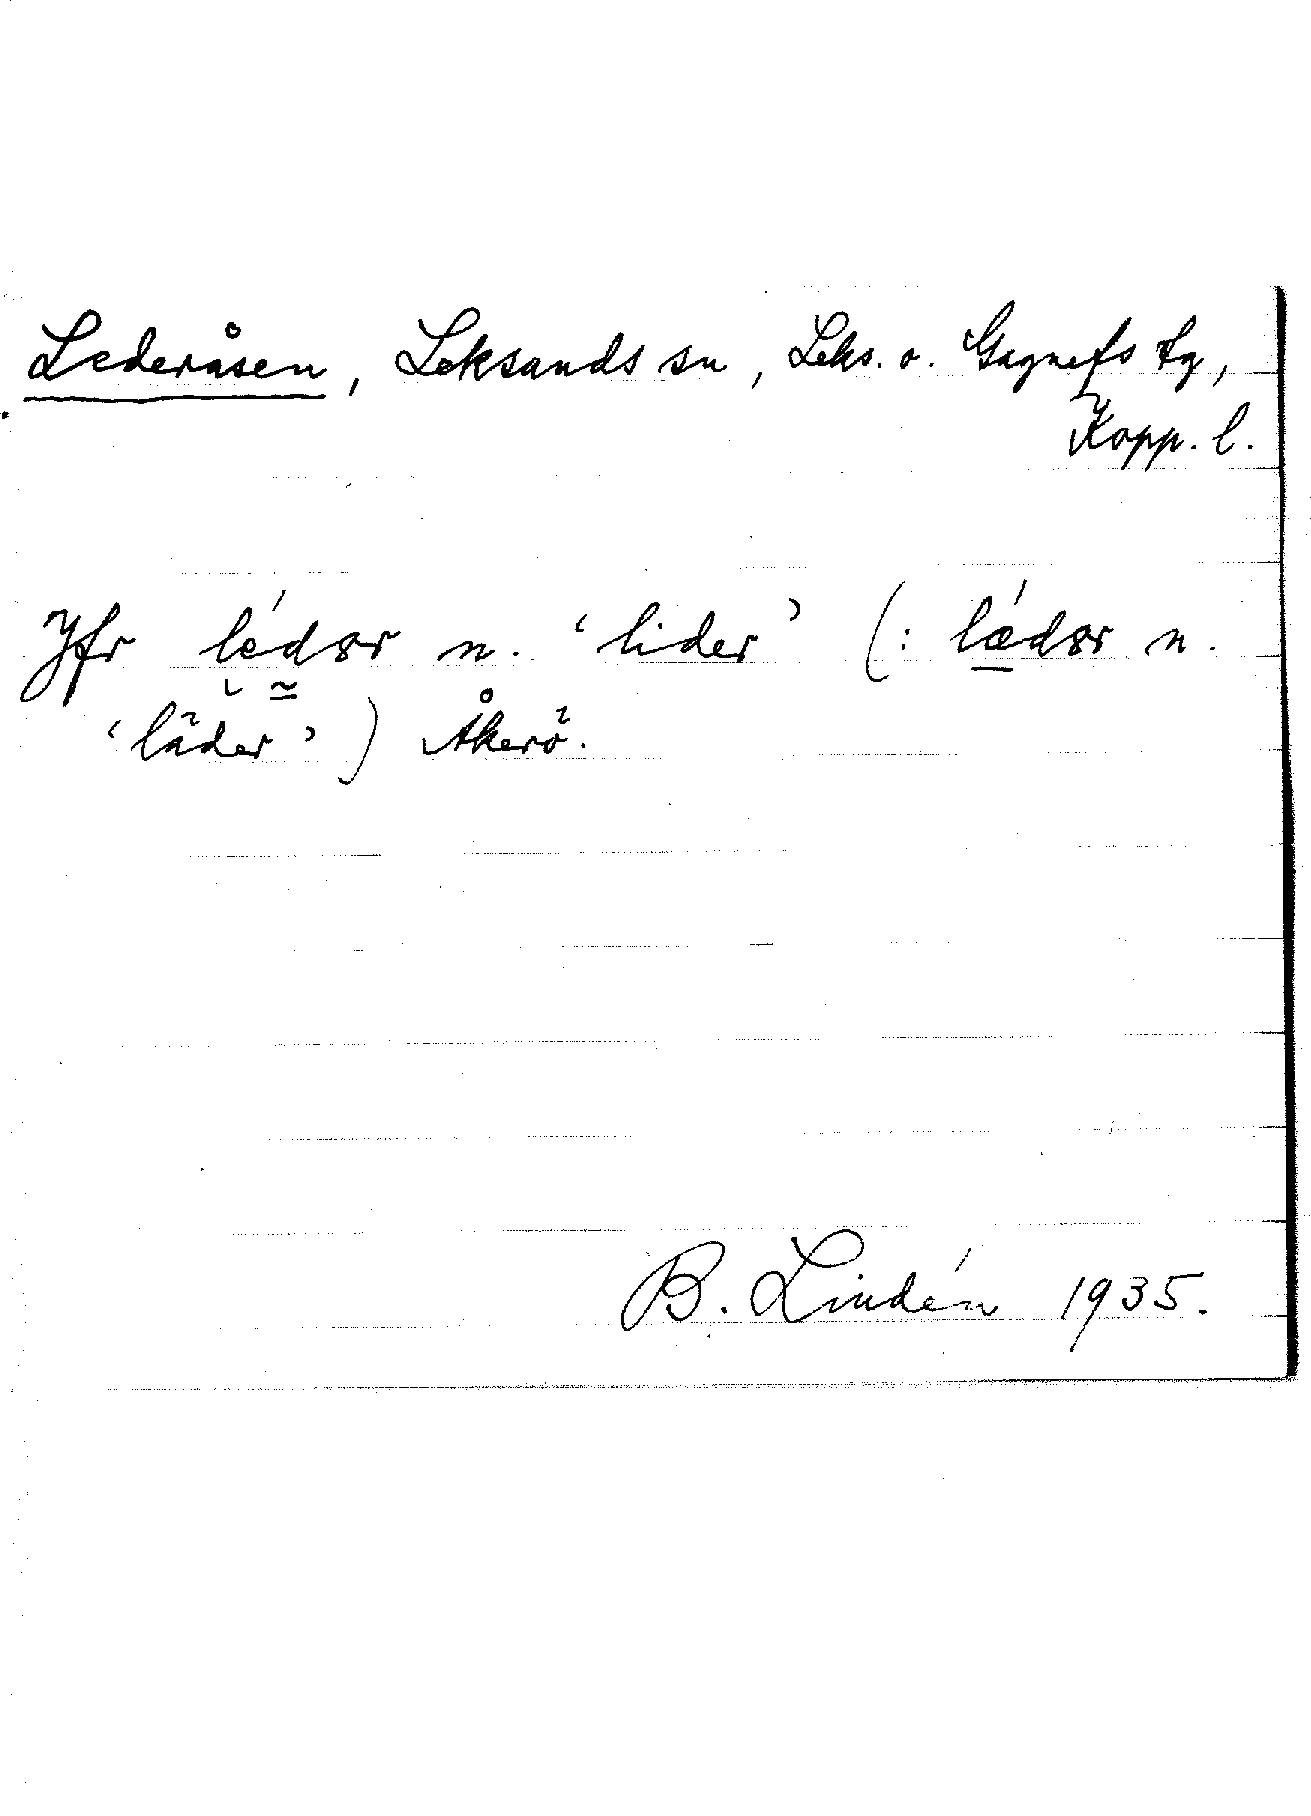 Lederåsen, Leksands sn, Leks. o. Gagnefs tg,
Kopp. l.
Jfr lédər n. 'lider' (: lǽdər n.
'läder') Åkerö.
B. Lindén 1935.